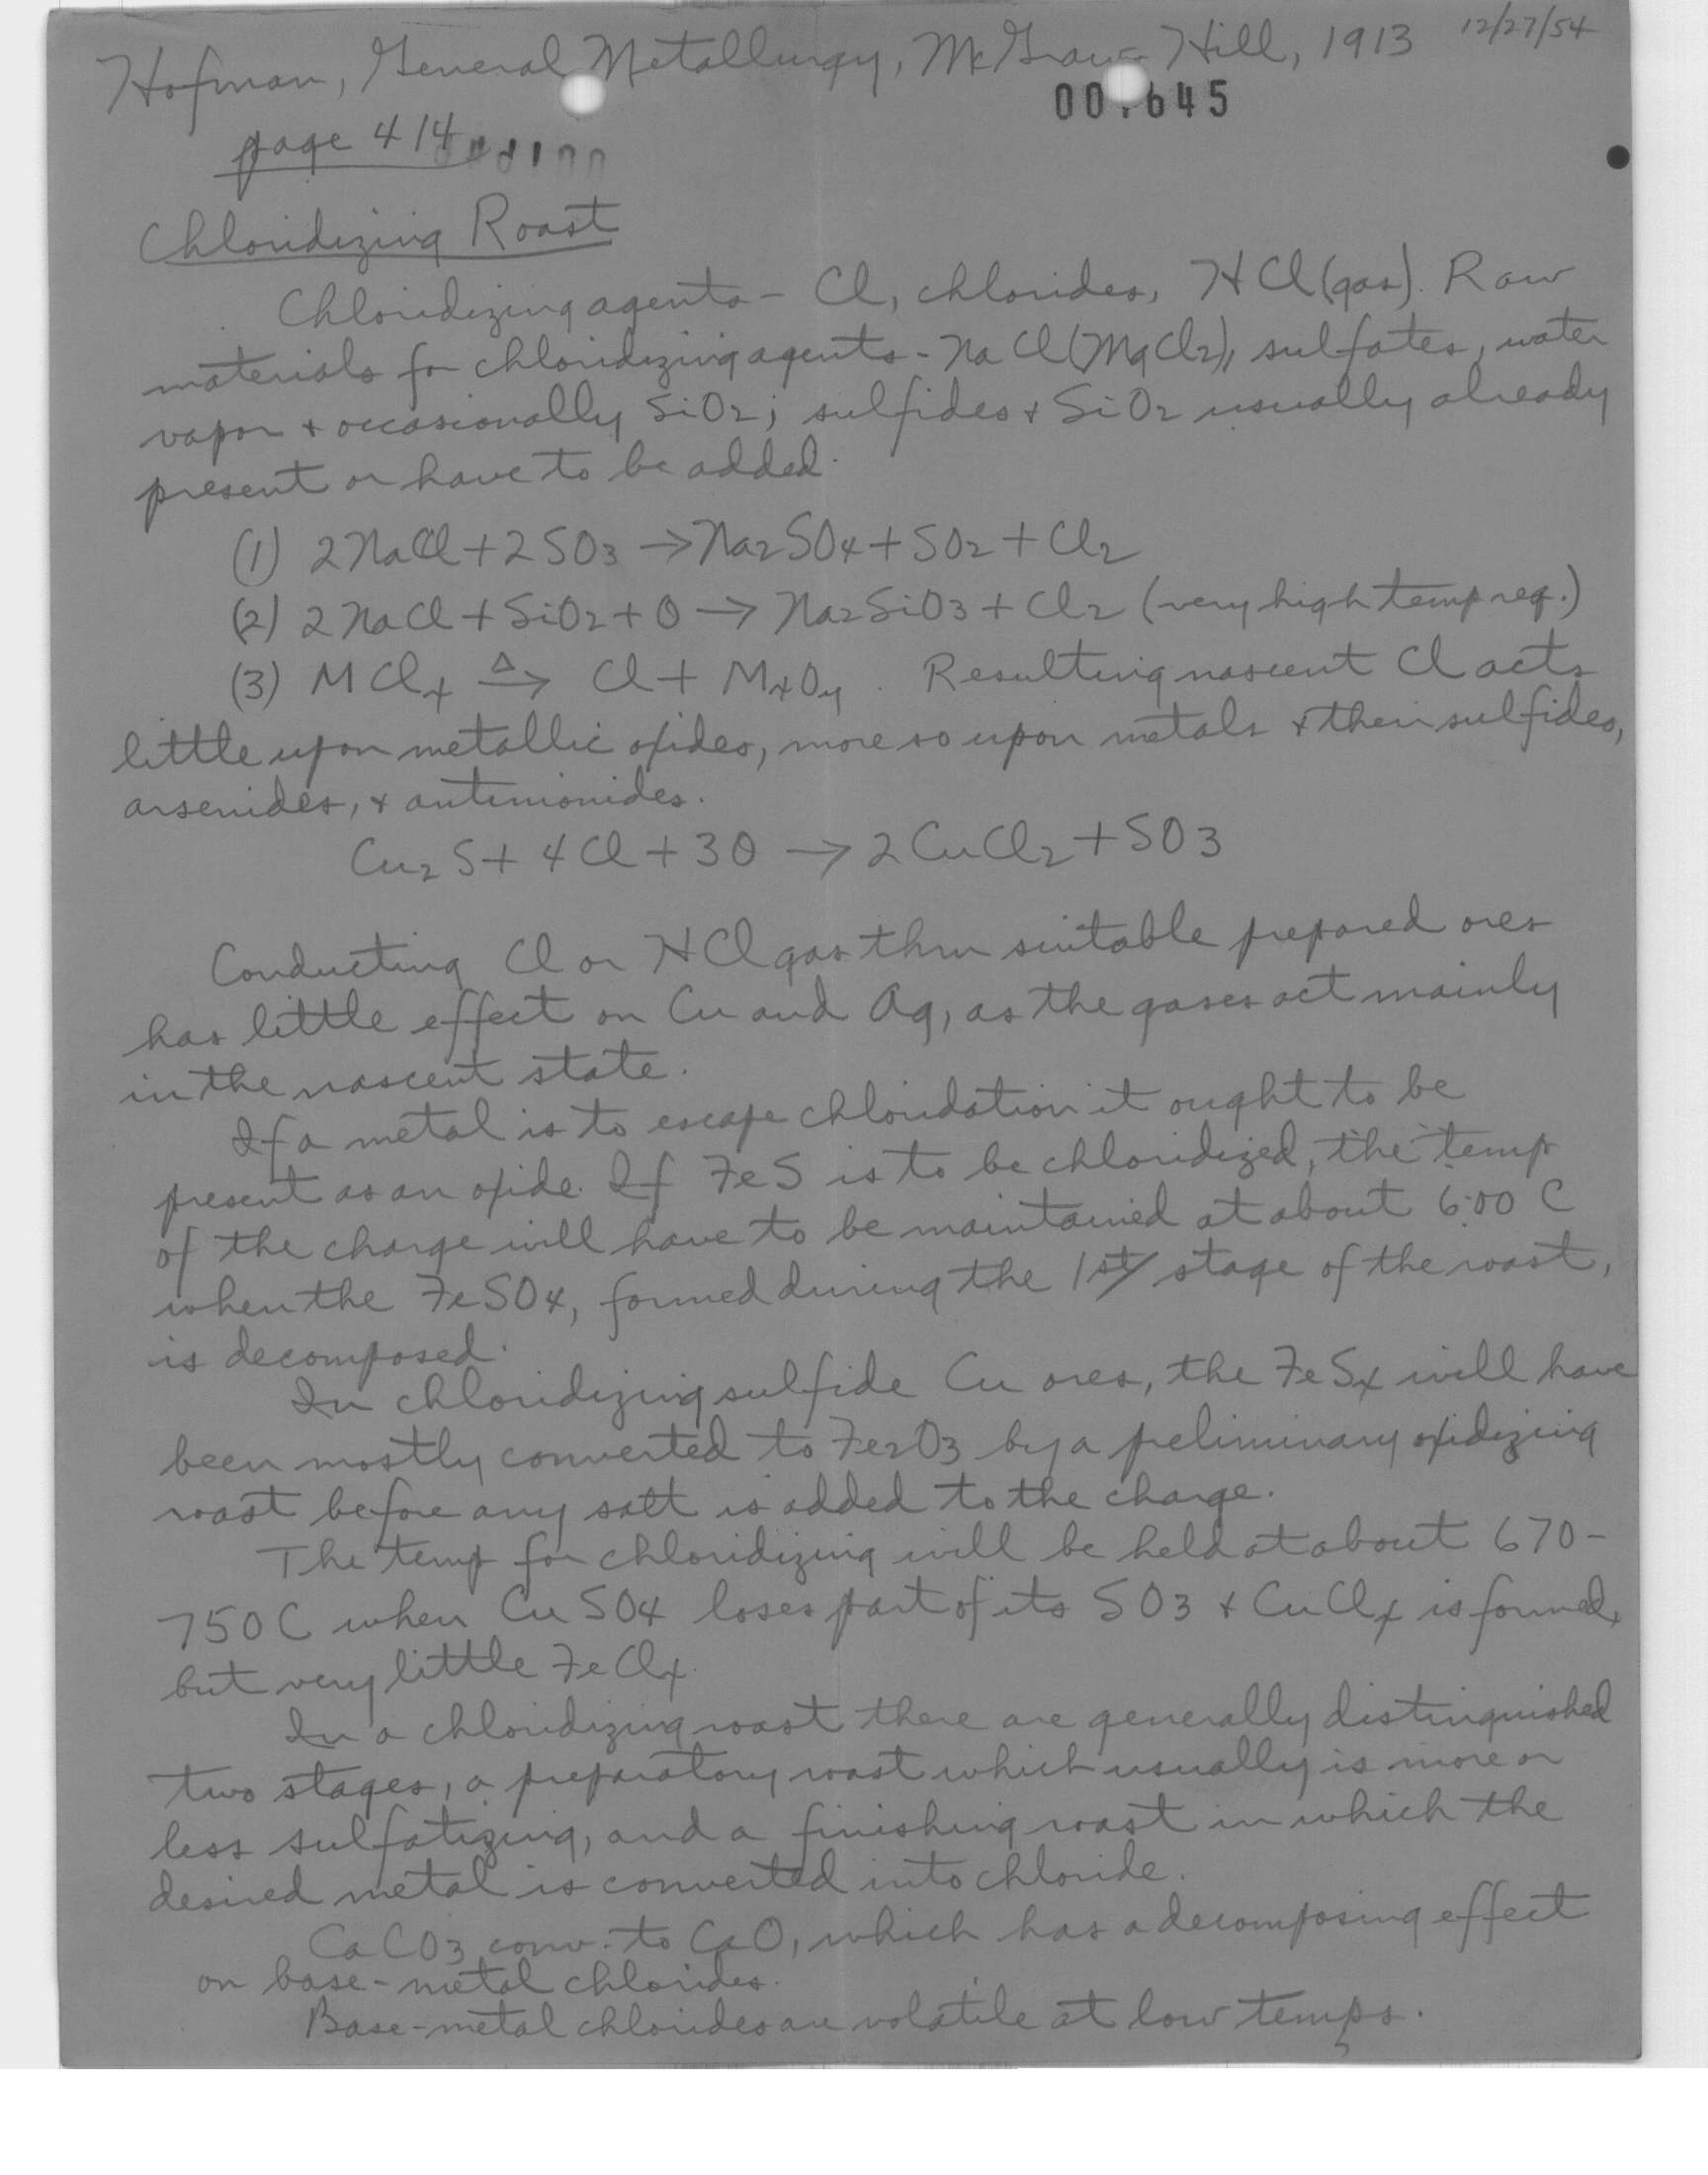 Hofman, General Metallurgy, McGraw-Hill, 1913 12/27/54
645
page 414
Chloridizing Roast
Chloridizing agents - Cl, chlorides, HCl (gas). Raw
materials for chloridizing agents - NaCl (MgCl2), sulfates, water
vapor + occasionally SiO2; sulfides + SiO2 usually already
present or have to be added.
(1) 2NaCl + 2SO3 → Na2SO4 + SO2 + Cl2
(2) 2NaCl + SiO2 + O → Na2SiO3 + Cl2 (very high temp req.)
(3) MClx Δ→ Cl + MxOy. Resulting nascent Cl acts
little upon metallic oxides, more so upon metals + their sulfides,
arsenides, + antimonides.
Cu2S + 4Cl + 3O → 2CuCl2 + SO3
Conducting Cl or HCl gas thru suitable prepared ores
has little effect on Cu and Ag, as the gases act mainly
in the nascent state.
If a metal is to escape chloridation it ought to be
present as an oxide. If FeS is to be chloridized, the temp
of the charge will have to be maintained at about 600 C
when the FeSO4, formed during the 1st stage of the roast,
is decomposed.
In chloridizing sulfide Cu ores, the FeSx will have
been mostly converted to Fe2O3 by a preliminary oxidizing
roast before any salt is added to the charge.
The temp for chloridizing will be held at about 670-
750 C when CuSO4 loses part of its SO3 + CuClx is formed,
but very little FeClx.
In a chloridizing roast there are generally distinguished
two stages, a preparatory roast which usually is more or
less sulfatizing, and a finishing roast in which the
desired metal is converted into chloride.
CaCO3 conv. to CaO, which has a decomposing effect
on base-metal chlorides.
Base-metal chlorides are volatile at low temps.